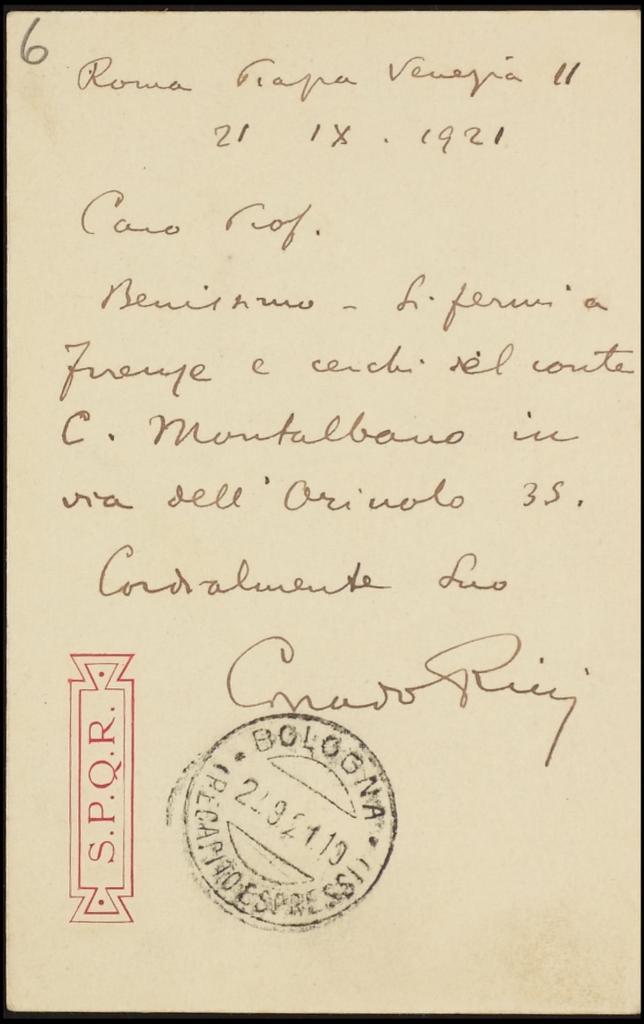 6
Roma Piazza Venezia 11
21 IX . 1921
Caro Prof.
Benissimo - Si fermi a
Firenze e cerchi del conte
C. Montalbano in
via dell'Orivolo 35.
Cordialmente Suo
Corrado Ricci
S.P.Q.R.
BOLOGNA
22.9.21.19
(RECAPITO ESPRESSI)